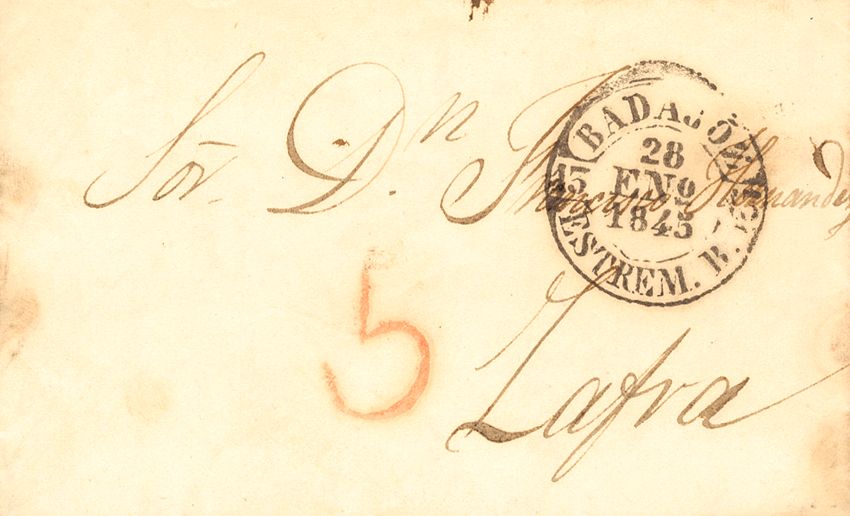 Sor. Dn. Francisco Hernandez
BADAJOZ
28
ENº
1845
ESTREM. B.
5
Zafra